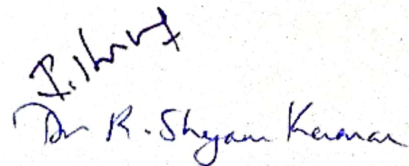 Dr R. Shyam Kumar